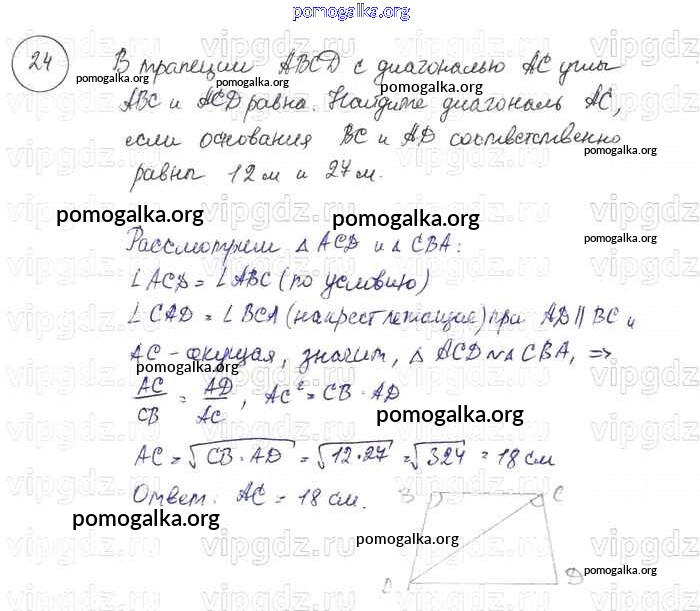 pomogalka.org
24 В трапеции ABCD с диагональю AC углы
pomogalka.org
pomogalka.org
ABC и ACD равна. Найдите диагональ AC,
если основания BC и AD соответственно
pomogalka.org
равны 12 м и 27 м.
pomogalka.org
pomogalka.org
Рассмотрем △ ACD и △ CBA:
pomogalka.org
∠ ACD = ∠ ABC (по условию)
∠ CAD = ∠ BCA (накрест лежащие) при AD || BC и
AC - секущая, значит, △ ACD ∾ △ CBA, =>
pomogalka.org
AC/CB = AD/AC, AC² = CB · AD
pomogalka.org
AC = √CB · AD = √12·27 = √324 = 18 см
Ответ. AC = 18 см.
B C
pomogalka.org
pomogalka.org
pomogalka.org
D
vipgdz.ru